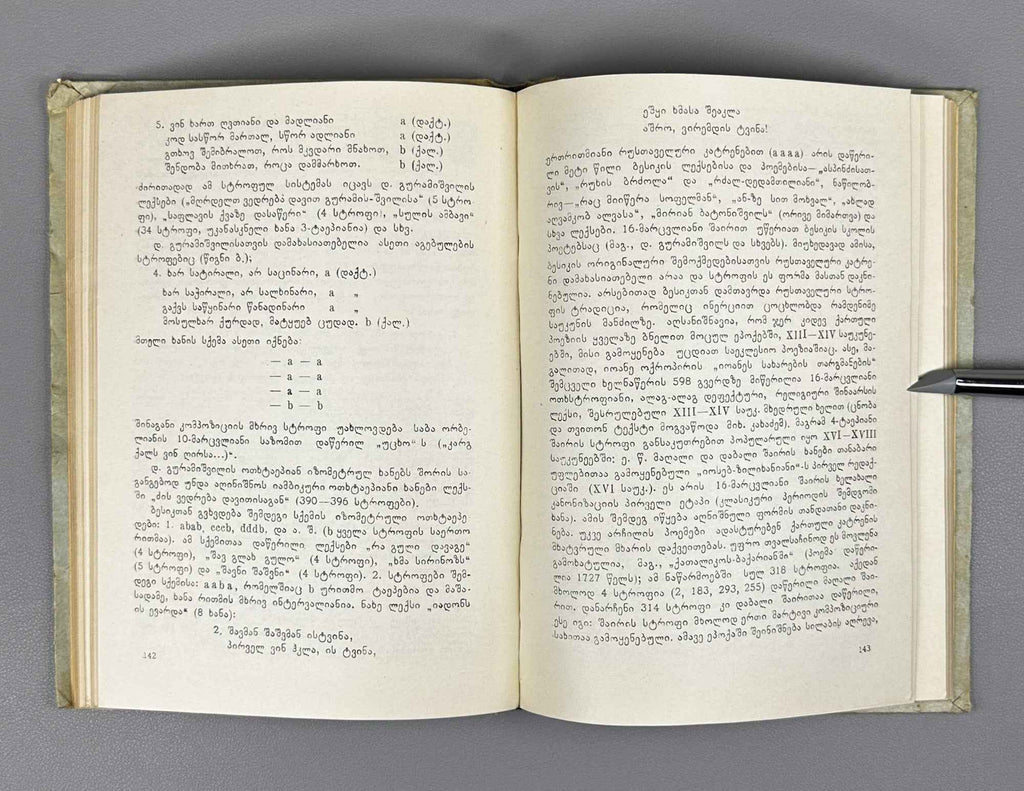 5. ვინ ხართ ღვთიანი და მადლიანი a (დაქტ.)
კოდ სასწორ მართალ, სწორ ადლიანი a (დაქტ.)
გთხოვ შემიბრალოთ, როს მკვდარი მნახოთ, b (ქალ.)
შენდობა მითხრათ, როცა დამმარხოთ. b (ქალ.)
ძირითადად ამ სტროფულ სისტემას იცავს დ. გურამიშვილის
ლექსები („მღრდელთ ვედრება დავით გურამის-შვილისა“ (5 სტრო-
ფი), „საფლავის ქვაზე დასაწერი“ (4 სტროფი), „სულის ამბავი“
(34 სტროფი, უკანასკნელი ხანა 3-ტაეპიანია) და სხვ.
დ. გურამიშვილისათვის დამახასიათებელია ასეთი აგებულების
სტროფებიც (წიგნი ბ.);
4. ხარ სატირალი, არ საცინარი, a (დაქტ.)
ხარ საჭირალი, არ სალხინარი, a „
გაქვს საწყინარი წანადინარი a „
მოსულხარ ქურდად, მატყუებ ცუდად. b (ქალ.)
მთელი ხანის სქემა ასეთი იქნება:
— a — a
— a — a
— a — a
— b — b
შინაგანი კომპოზიციის მხრივ სტროფი უახლოვდება საბა ორბე-
ლიანის 10-მარცვლიანი საზომით დაწერილ „უცხო“-ს („კარგ
ქალს ვინ ღირსა...)“.
დ. გურამიშვილის ოთხტაეპიან იზომეტრულ ხანებს შორის სა-
განგებოდ უნდა აღინიშნოს იამბიკური ოთხტაეპიანი ხანები ლექს-
ში „ძის ვედრება დავითისაგან“ (390—396 სტროფები).
ბესიკთან გვხვდება შემდეგი სქემის იზომეტრული ოთხტაეპე-
დები: 1. abab, cccb, dddb, და ა. შ. (b ყველა სტროფის საერთო
რითმაა). ამ სქემითაა დაწერილი ლექსები „რა გული დავაგე“
(4 სტროფი), „შავ გლახ გულო“ (4 სტროფი), „ხმა სირინოზს“
(5 სტროფი) და „შავნი შაშვნი“ (4 სტროფი). 2. სტროფები შემ-
დეგი სქემისა: aaba, რომელშიაც b ურითმო ტაეპებია და მაშა-
სადამე, ხანა რითმის მხრივ ინტერვალიანია. ნახე ლექსი „იადონს
ის ევარდა“ (8 ხანა):
2. შავმან შაშვმან ისტვინა,
პირველ ვინ ჰკლა, ის ტვინა,
142
ეშყი ხმასა შეაკლა
აშრო, ვირემდის ტვინა!
ერთრითმიანი რუსთაველური კატრენებით (aaaa) არის დაწერი-
ლი მეტი წილი ბესიკის ლექსებისა და პოემებისა—„ასპინძისათ-
ვის“, „რუხის ბრძოლა“ და „რძალ-დედამთილიანი“, ნაწილობ-
რივ—„რაც მიიწერა სოფელმან“, „ან-ზე სით მოხვალ“, „ახლად
აღვამკობ ალვასა“, „მირიან ბატონიშვილს“ (ორივე მიმართვა) და
სხვა ლექსები. 16-მარცვლიანი შაირით უწერიათ ბესიკის სკოლის
პოეტებსაც (მაგ., დ. გურამიშვილს და სხვებს). მიუხედავად ამისა,
ბესიკის ორიგინალური შემოქმედებისათვის რუსთაველური კატრე-
ნი დამახასიათებელი არაა და სტროფის ეს ფორმა მასთან დაკნი-
ნებულია. არსებითად ბესიკთან დამთავრდა რუსთაველური სტრო-
ფის ტრადიცია, რომელიც ინერციით ცოცხლობდა რამდენიმე
საუკუნის მანძილზე. აღსანიშნავია, რომ ჯერ კიდევ ქართული
პოეზიის ყველაზე ბნელით მოცულ ეპოქებში, XIII—XIV საუკუნე-
ებში, მისი გამოყენება უცდიათ საეკლესიო პოეზიაშიაც. ასე, მა-
გალითად, იოანე ოქროპირის „იოანეს სახარების თარგმანების“
შემცველი ხელნაწერის 598 გვერდზე მიწერილია 16-მარცვლიანი
ოთხსტროფიანი, ალაგ-ალაგ დეფექტური, რელიგიური შინაარსის
ლექსი, შესრულებული XIII—XIV საუკ. მხედრული ხელით (ცნობა
და თვითონ ტექსტი მოგვაწოდა მიხ. კახაძემ). მაგრამ 4-ტაეპიანი
შაირის სტროფი განსაკუთრებით პოპულარული იყო XVI—XVIII
საუკუნეებში; ე. წ. მაღალი და დაბალი შაირის ხანები თანაბარი
უფლებითაა გამოყენებული „იოსებ-ზილიხანიანი“-ს პირველ რედაქ-
ციაში (XVI საუკ.). ეს არის 16-მარცვლიანი შაირის ხელახალი
კანონიზაციის პირველი ეტაპი (კლასიკური პერიოდის შემდგომი
ხანა). ამის შემდეგ იწყება აღნიშნული ფორმის თანდათანი დაკნი-
ნება. უკვე არჩილის პოემები ადასტურებენ ქართული კატრენის
მხატვრული მხარის დაქვეითებას. უფრო თვალსაჩინოდ ეს მოვლენა
გამოხატულია, მაგ., „ქათალიკოს-ბაქარიანში“ (პოემა დაწერი-
ლია 1727 წელს); ამ ნაწარმოებში სულ 318 სტროფია. აქედან
მხოლოდ 4 სტროფია (2, 183, 293, 255) დაწერილი მაღალი შაი-
რით. დანარჩენი 314 სტროფი კი დაბალი შაირითაა დაწერილი,
ესე იგი: შაირის სტროფი მხოლოდ ერთი მარტივი კომპოზიციური
სახითაა გამოყენებული. ამავე ეპოქაში შეინიშნება სილაბის აღრევა,
143